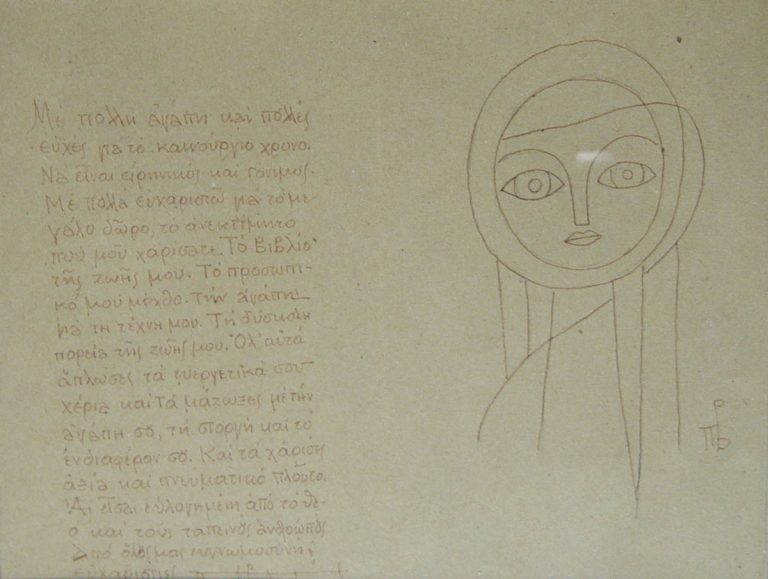 Μέ πολλή ἀγάπη καί πολλές
εὐχές γιά τό καινούργιο χρόνο.
Νά εἶναι εἰρηνικός καί γόνιμος.
Μέ πολλά εὐχαριστῶ γιά τό με-
γάλο δῶρο, τό ἀνεκτίμητο
πού μοῦ χάρισατε. Τό Βιβλίο
τῆς ζωῆς μου. Τό προσωπι-
κό μου μόχθο. Τήν ἀγάπη
γιά τή τέχνη μου. Τή δύσκολη
πορεία τῆς ζωῆς μου. Ὅλ' αὐτά
ἅπλωσες τά εὐεργετικά σου
χέρια καί τά μάζωξες μέ τήν
ἀγάπη σου, τή στοργή καί τό
ἐνδιαφέρον σου. Καί τά χάρισες
ἀξία καί πνευματικό πλοῦτο.
Ἄς εἶσαι εὐλογημένη ἀπό τό θε-
ό καί τούς ταπεινούς ἀνθρώπους
Ἀπό ὅλους μας εὐγνωμοσύνη,